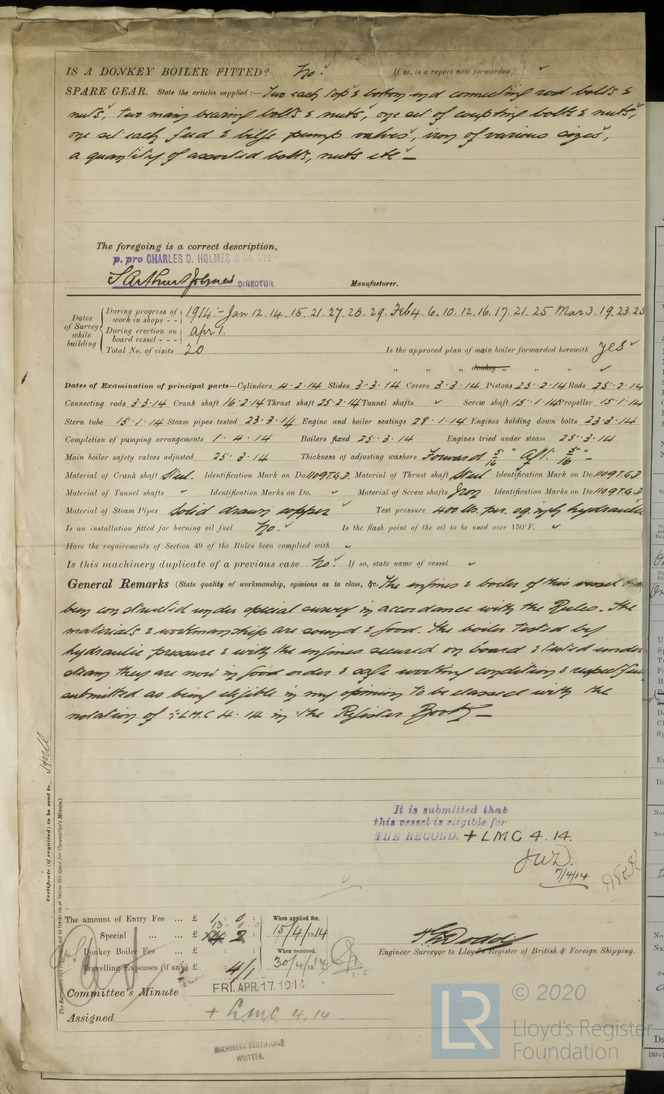 IS A DONKEY BOILER FITTED? No. If so, is a report now forwarded?
SPARE GEAR. State the articles supplied:— Two each top & bottom end connecting rod bolts &
nuts, two main bearing bolts & nuts, one set of coupling bolts & nuts,
one set each feed & bilge pump valves, iron of various sizes,
a quantity of assorted bolts, nuts etc —
The foregoing is a correct description,
p. pro CHARLES D. HOLMES & CO. LTD.
Arthur Holmes DIRECTOR Manufacturer.
Dates of Survey while building
During progress of work in shops - - 1914:- Jan 12. 14. 15. 21. 27. 28. 29. Feb 4. 6. 10. 12. 16. 17. 21. 25 Mar 3. 19. 23. 25
During erection on board vessel - - - Apr 1.
Total No. of visits 20 Is the approved plan of main boiler forwarded herewith Yes
" " " donkey " " " "
Dates of Examination of principal parts—Cylinders 4.2.14 Slides 3.3.14 Covers 3.3.14 Pistons 25.2.14 Rods 25.2.14
Connecting rods 3.3.14 Crank shaft 16.2.14 Thrust shaft 25.2.14 Tunnel shafts Screw shaft 15.1.14 Propeller 15.1.14
Stern tube 15.1.14 Steam pipes tested 23.3.14 Engine and boiler seatings 28.1.14 Engines holding down bolts 23.3.14
Completion of pumping arrangements 1.4.14 Boilers fixed 25.3.14 Engines tried under steam 25.3.14
Main boiler safety valves adjusted 25.3.14 Thickness of adjusting washers Forward 5/16" Aft 5/16"
Material of Crank shaft Steel. Identification Mark on Do. 1109 T.G.D. Material of Thrust shaft Steel Identification Mark on Do. 1109 T.G.D
Material of Tunnel shafts Identification Marks on Do. Material of Screw shafts Iron Identification Marks on Do. 1109 T.G.D
Material of Steam Pipes Solid drawn copper Test pressure 400 lb. per. sq. inch hydraulic
Is an installation fitted for burning oil fuel No. Is the flash point of the oil to be used over 150°F.
Have the requirements of Section 49 of the Rules been complied with
Is this machinery duplicate of a previous case No. If so, state name of vessel
General Remarks (State quality of workmanship, opinions as to class, &c. The engines & boiler of this vessel have
been constructed under special survey in accordance with the Rules. The
materials & workmanship are sound & good. The boiler tested by
hydraulic pressure & with the engines secured on board & tested under
steam they are now in good order & safe working condition & respectfully
submitted as being eligible in my opinion to be classed with the
notation of + LMC 4.14 in the Register Book —
Certificate (if required) to be sent to Hull
It is submitted that
this vessel is eligible for
THE RECORD. + LMC 4.14.
J.W.D.
7/4/14
The amount of Entry Fee ... £ 1 : 0 : When applied for,
Special ... £ 15/4/1914
Donkey Boiler Fee ... £ When received,
Travelling Expenses (if any) £ 4/1 30/4/1914
Engineer Surveyor to Lloyd's Register of British & Foreign Shipping.
Committee's Minute FRI. APR. 17. 1914
Assigned + L.M.C. 4.14
MACHINERY CERTIFICATE
WRITTEN.
LR © 2020
Lloyd's Register
Foundation